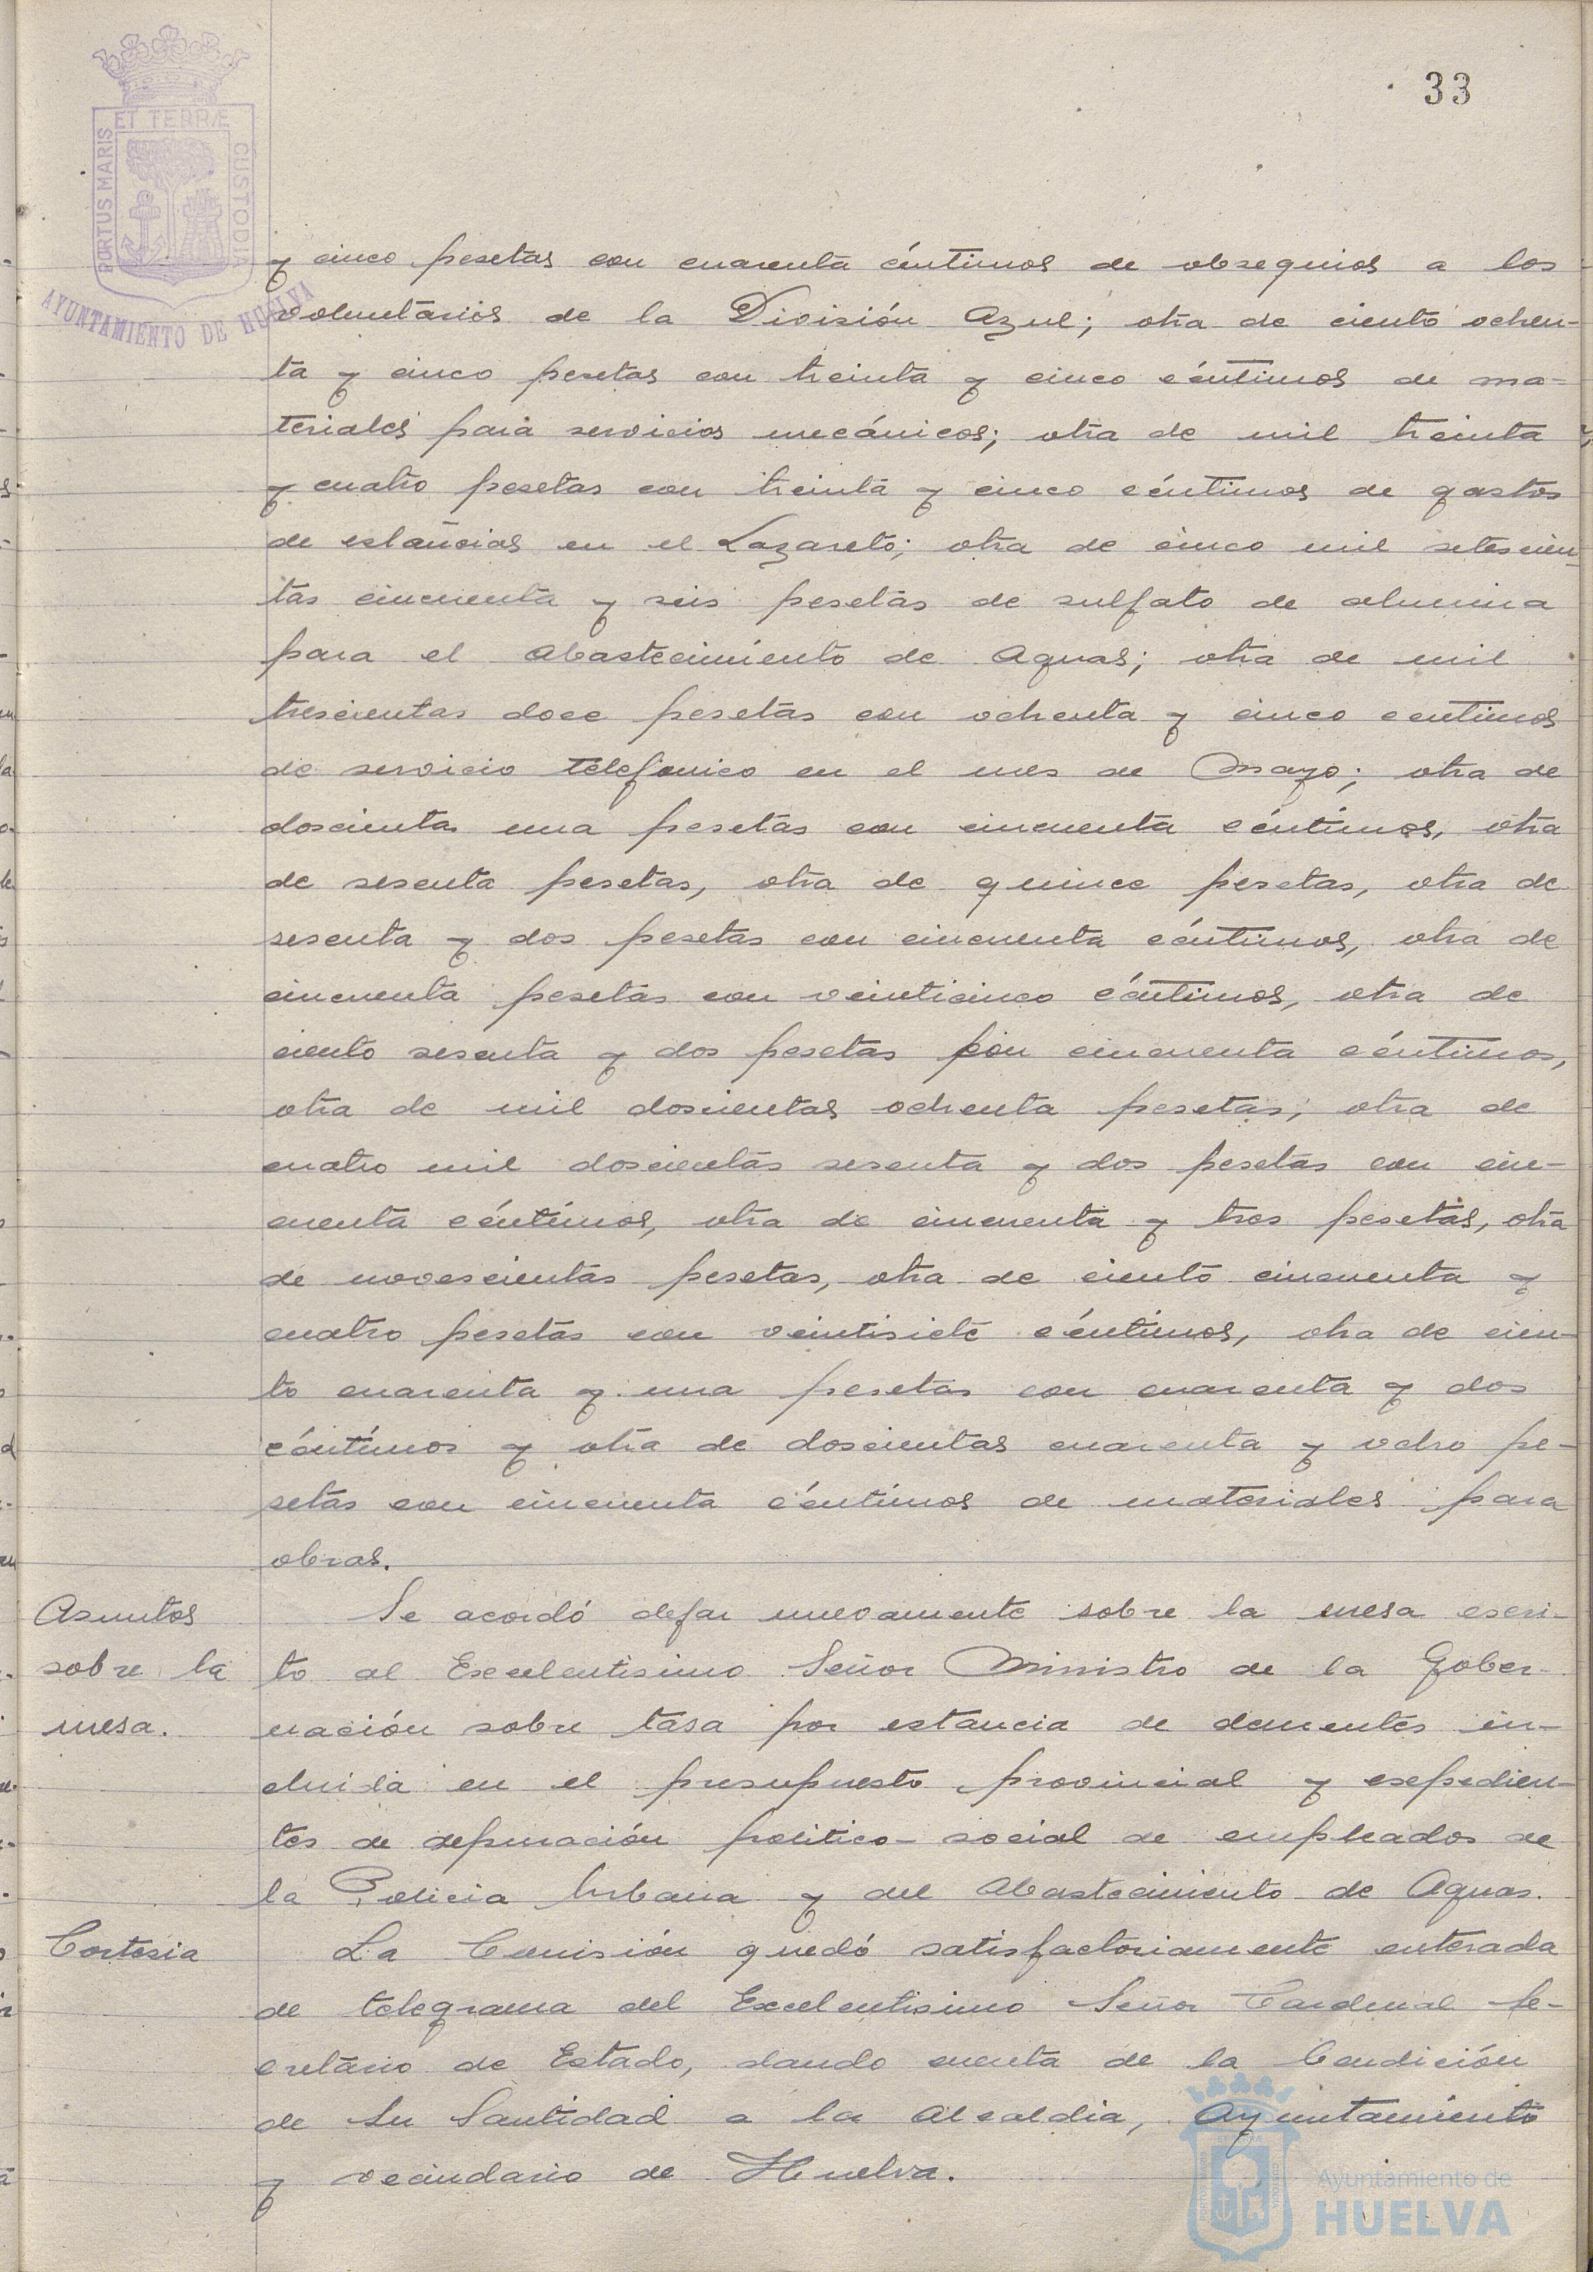 33
PORTUS MARIS ET TERRÆ CUSTODIA
AYUNTAMIENTO DE HUELVA
y cinco pesetas con cuarenta céntimos de obsequios a los
voluntarios de la División Azul; otra de ciento ochen-
ta y cinco pesetas con treinta y cinco céntimos de ma-
teriales para servicios mecánicos; otra de mil treinta
y cuatro pesetas con treinta y cinco céntimos de gastos
de estancias en el Lazareto; otra de cinco mil setescien-
tas cincuenta y seis pesetas de sulfato de alumina
para el Abastecimiento de Aguas; otra de mil
trescientas doce pesetas con ochenta y cinco centimos
de servicio telefonico en el mes de Mayo; otra de
doscientas una pesetas con cincuenta céntimos, otra
de sesenta pesetas, otra de quince pesetas, otra de
sesenta y dos pesetas con cincuenta céntimos, otra de
cincuenta pesetas con veinticinco céntimos, otra de
ciento sesenta y dos pesetas con cincuenta céntimos,
otra de mil doscientas ochenta pesetas; otra de
cuatro mil doscientas sesenta y dos pesetas con cin-
cuenta céntimos, otra de cincuenta y tres pesetas, otra
de novescientas pesetas, otra de ciento cincuenta y
cuatro pesetas con veintisiete céntimos, otra de cien-
to cuarenta y una pesetas con cuarenta y dos
céntimos y otra de doscientas cuarenta y ocho pe-
setas con cincuenta céntimos de materiales para
obras.
Asuntos sobre la mesa.
Se acordó dejar nuevamente sobre la mesa escri-
to al Excelentisimo Señor Ministro de la Gober-
nación sobre tasa por estancia de dementes in-
cluida en el presupuesto provincial y expedien-
tes de depuración politico-social de empleados de
la Policia Urbana y del Abastecimiento de Aguas.
Cortesia
La Comisión quedó satisfactoriamente enterada
de telegrama del Excelentisimo Señor Cardenal Se-
cretario de Estado, dando cuenta de la bendición
de Su Santidad a la Alcaldia, Ayuntamiento
y vecindario de Huelva.
Ayuntamiento de
HUELVA